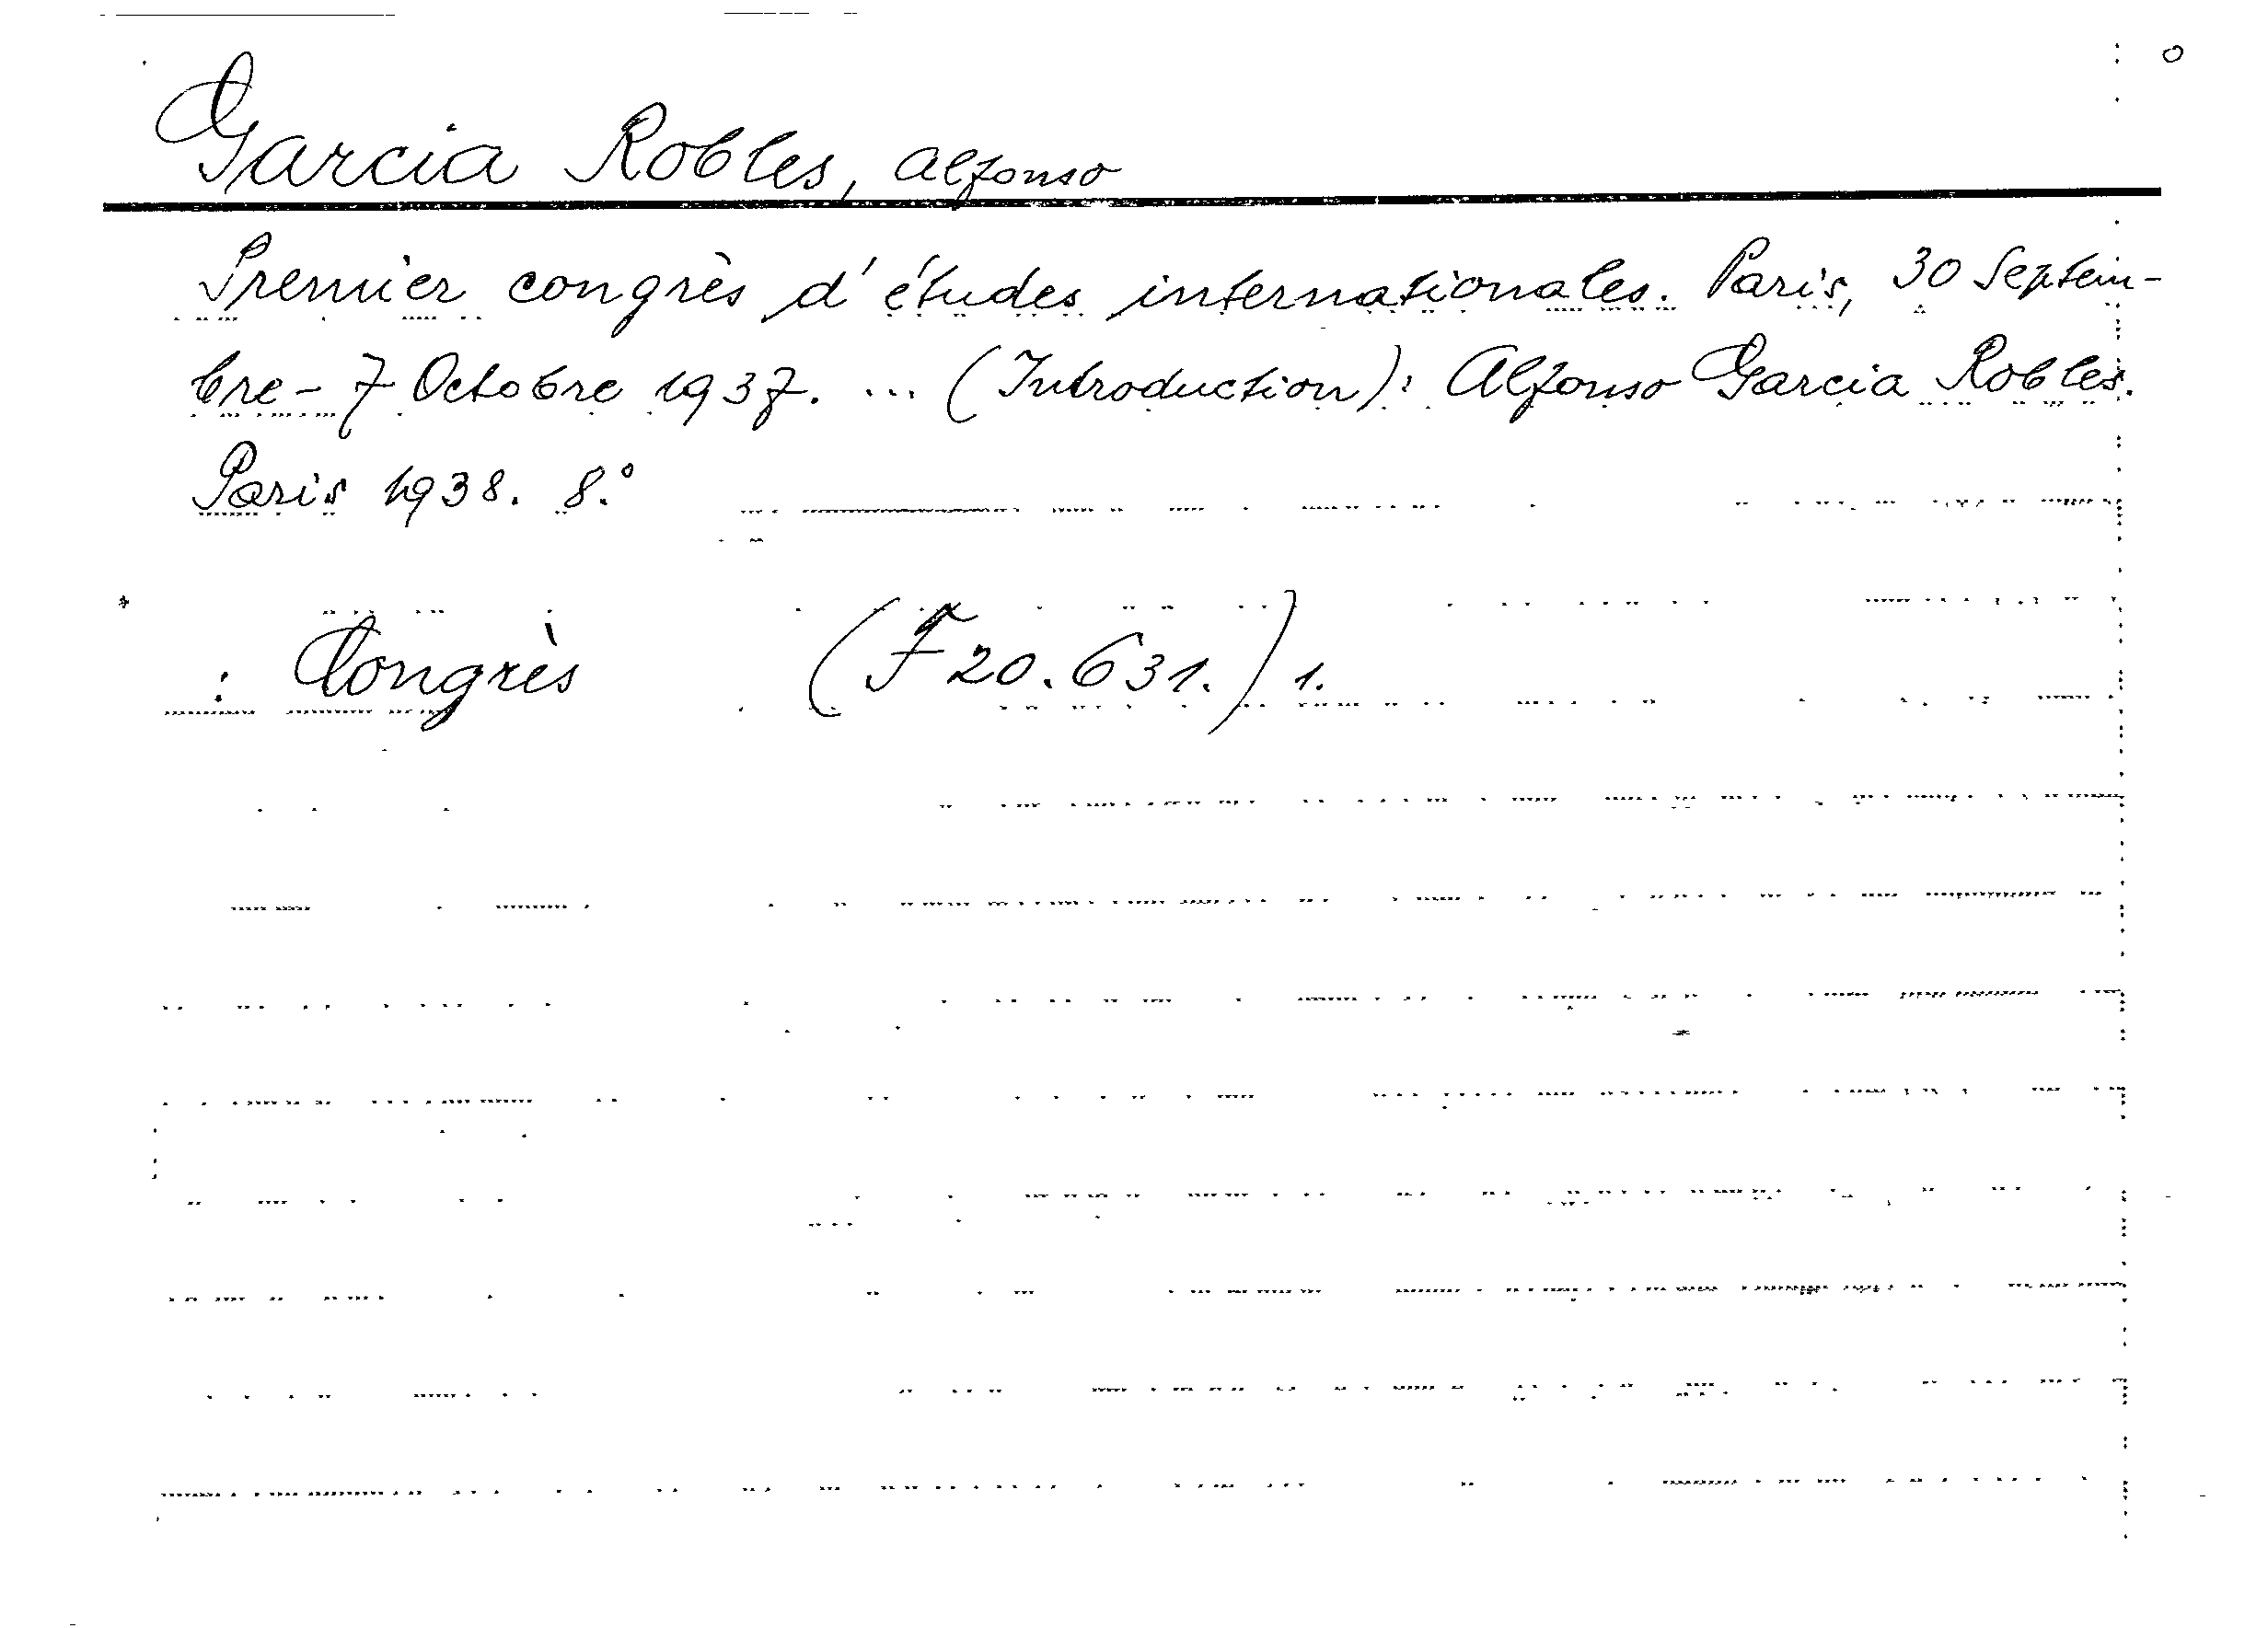 Garcia Robles, Alfonso
Premier congrès d'études internationales. Paris, 30 Septem-
bre - 7 Octobre 1937. ... (Introduction): Alfonso Garcia Robles.
Paris 1938. 8.°
: Congrès (F 20.631.) 1.